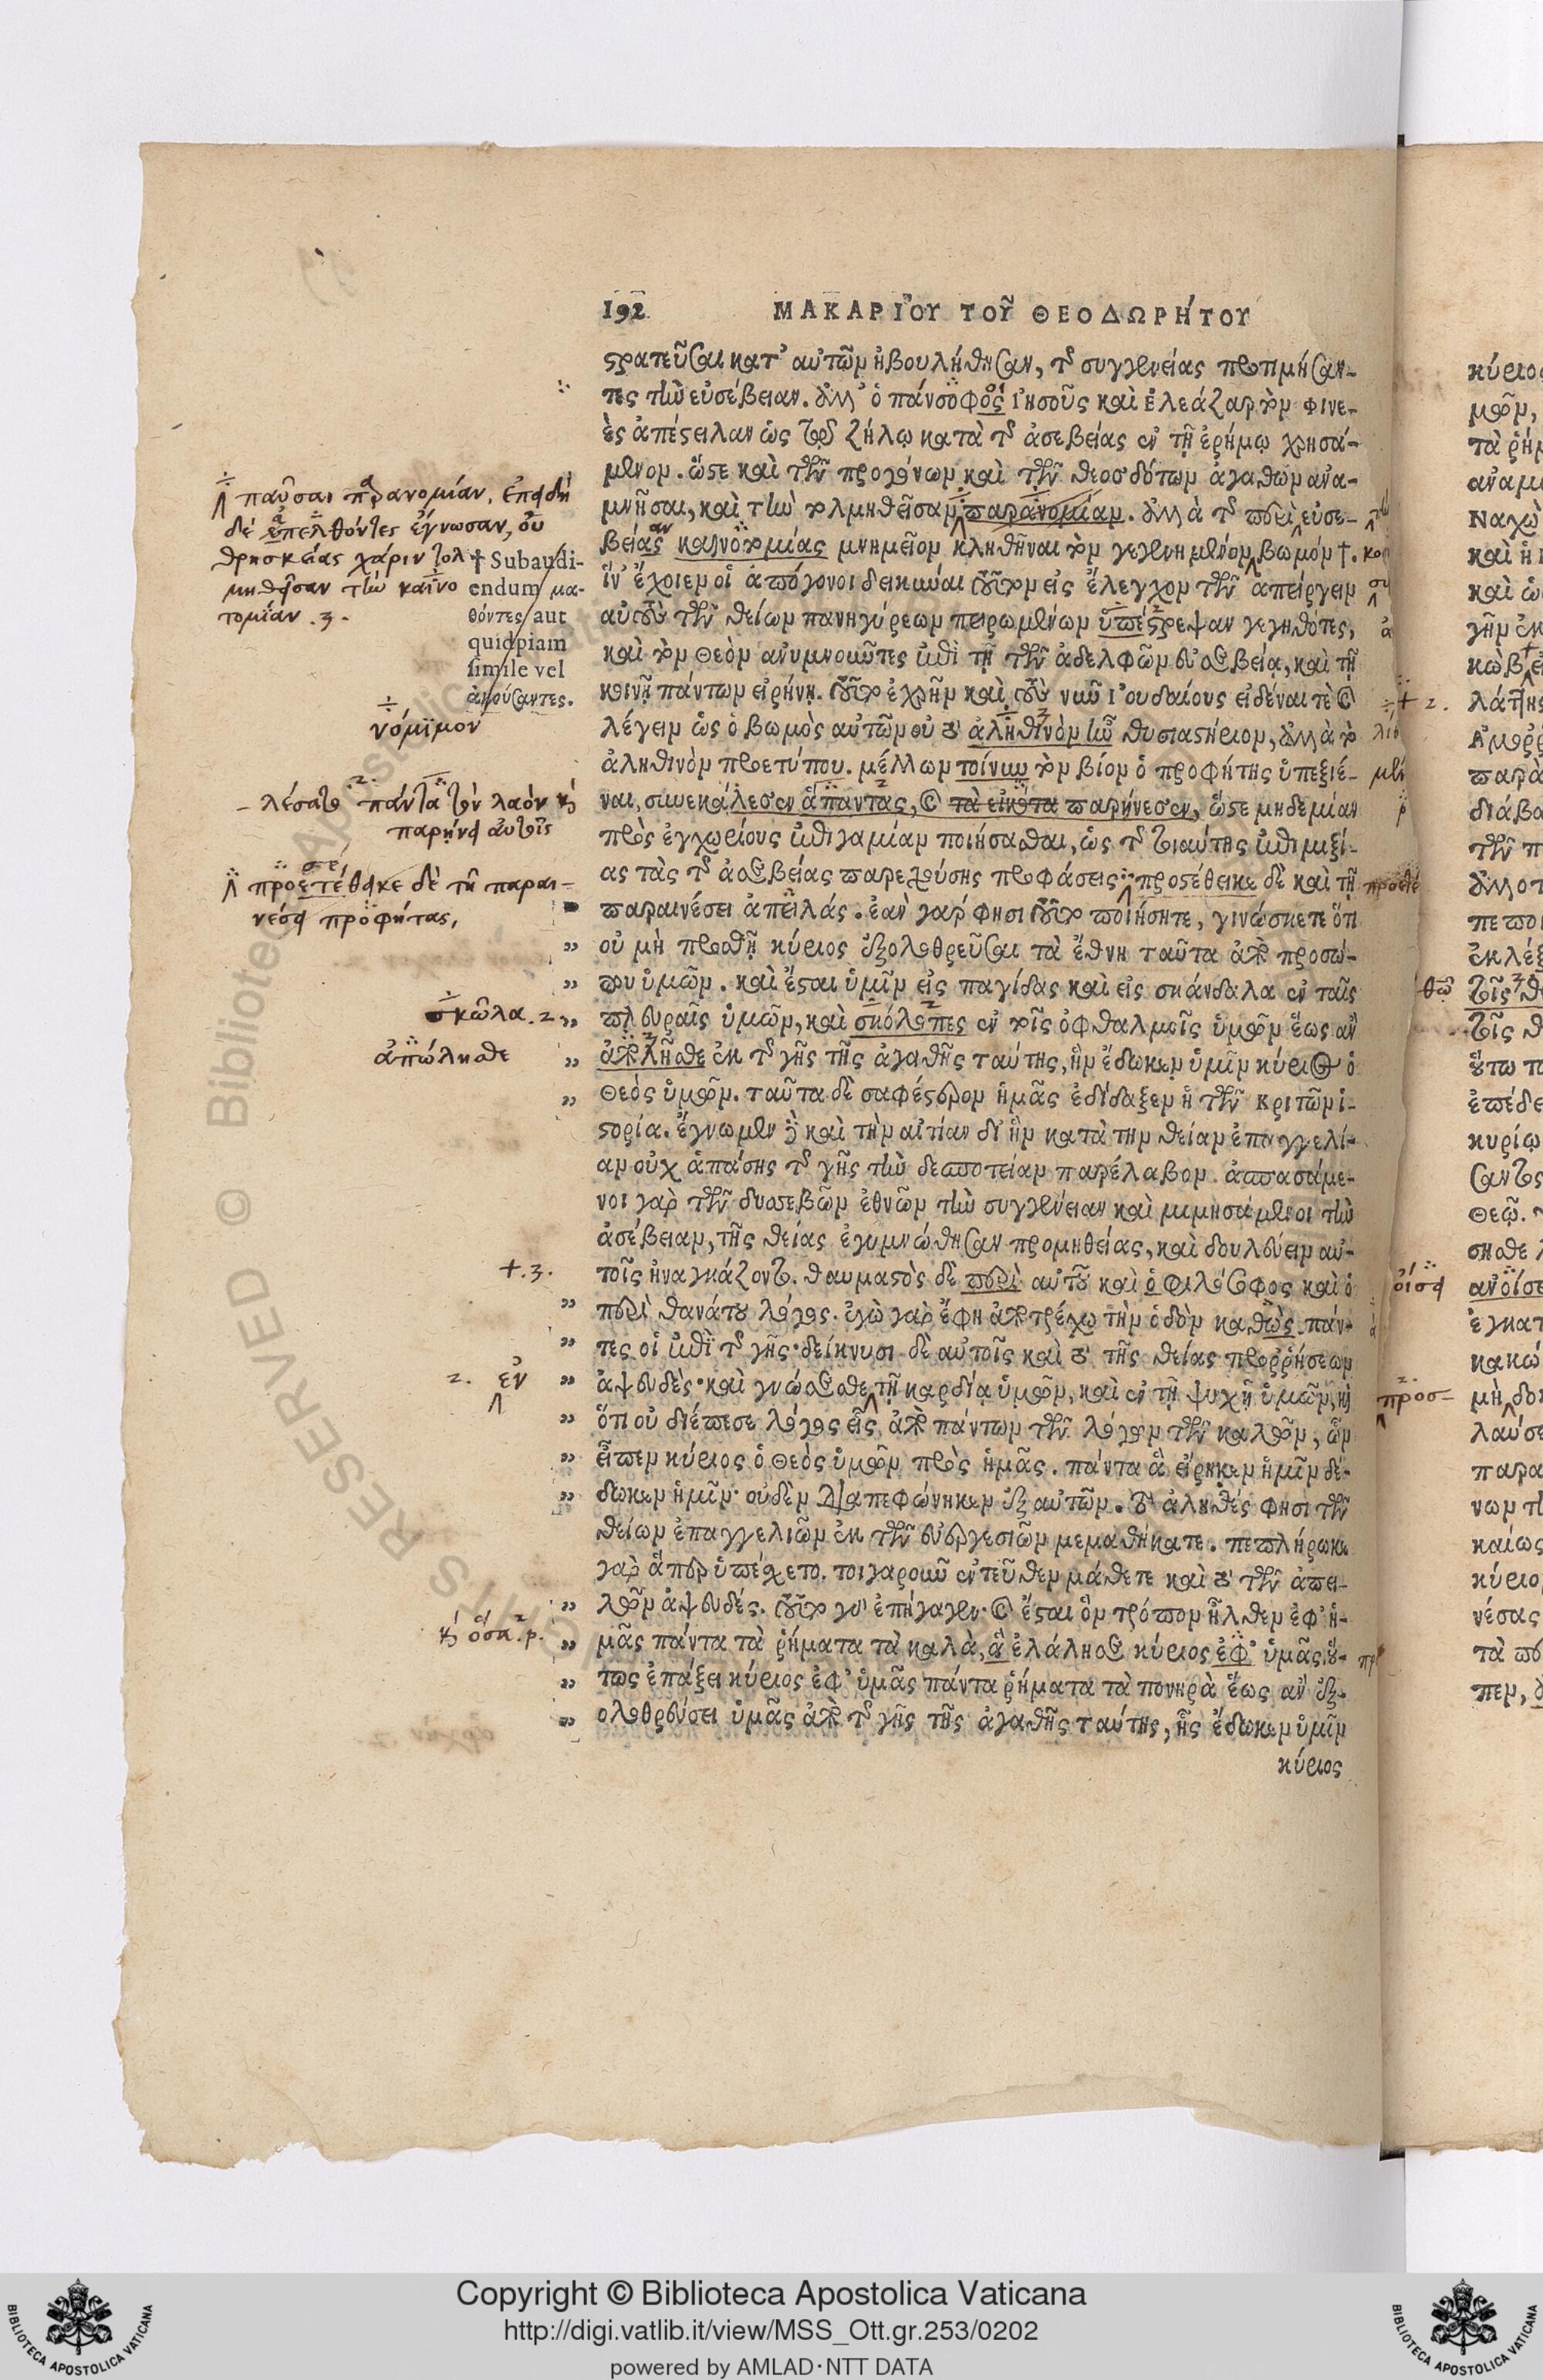 192 ΜΑΚΑΡΊΟΥ ΤΟΥ͂ ΘΕΟΔΩΡΉΤΟΥ
στρατεῦσαι κατ᾽ αὐτῶν ἠβουλήθησαν, τῆς συγγενείας προτιμήσαν-
τες τὴν εὐσέβειαν. ἀλλ᾽ ὁ πάνσοφος Ἰησοῦς καὶ Ἐλεάζαρ τὸν Φινε-
ὲς ἀπέστειλαν ὡς τῷ ζήλῳ κατὰ τῆς ἀσεβείας ἐν τῇ ἐρήμῳ χρησά-
μενον. ὥστε καὶ τῶν προγόνων καὶ τῶν θεοσδότων ἀγαθῶν ἀνα-
μνῆσαι, καὶ τὴν τολμηθεῖσαν παρανομίαν. ἀλλὰ τῆς περὶ εὐσε-
βείας καινοτομίας μνημεῖον κληθῆναι τὸν γεγενημένον βωμόν †.
ἵν᾽ ἔχοιεν οἱ ἀπόγονοι δεικνύναι τοῦτον εἰς ἔλεγχον τῶν ἀπείργειν
αὐτοὺς τῶν θείων πανηγύρεων πειρωμένων ὑπέστρεψαν γεγηθότες,
καὶ τὸν Θεὸν ἀνυμνοῦντες ἐπὶ τῇ τῶν ἀδελφῶν εὐσεβείᾳ, καὶ τῇ
κοινῇ πάντων εἰρήνῃ. τοῦτο ἐχρῆν καὶ τοὺς νῦν Ἰουδαίους εἰδέναι τε καὶ
λέγειν ὡς ὁ βωμὸς αὐτῶν οὐ τὸ ἀληθινὸν ἦν θυσιαστήριον, ἀλλὰ τὸ
ἀληθινὸν προετύπου. μέλλων τοίνυν τὸν βίον ὁ προφήτης ὑπεξιέ-
ναι, συνεκάλεσεν ἅπαντας, καὶ τὰ εἰκότα παρῄνεσεν, ὥστε μηδεμίαν
πρὸς ἐγχωρίους ἐπιγαμίαν ποιήσασθαι, ὡς τῆς τοιαύτης ἐπιμιξί-
ας τὰς τῆς ἀσεβείας παρεχούσης προφάσεις προστέθεικε δὲ καὶ τῇ
παραινέσει ἀπειλάς. ἐὰν γάρ φησι τοῦτο ποιήσητε, γινώσκετε ὅτι
„ οὐ μὴ προσθῇ κύριος ἐξολοθρεῦσαι τὰ ἔθνη ταῦτα ἀπὸ προσώ-
„ που ὑμῶν. καὶ ἔσται ὑμῖν εἰς παγίδας καὶ εἰς σκάνδαλα ἐν ταῖς
„ πλευραῖς ὑμῶν, καὶ σκόλοπες ἐν τοῖς ὀφθαλμοῖς ὑμῶν ἕως ἂν
„ ἀπόλησθε ἐκ τῆς γῆς τῆς ἀγαθῆς ταύτης, ἣν ἔδωκεν ὑμῖν κύριος ὁ
„ Θεός ὑμῶν. ταῦτα δὲ σαφέστερον ἡμᾶς ἐδίδαξεν ἡ τῶν Κριτῶν ἱ-
στορία. ἔγνωμεν γὰρ καὶ τὴν αἰτίαν δι᾽ ἣν κατὰ τὴν θείαν ἐπαγγελί-
αν οὐχ ἁπάσης τῆς γῆς τὴν δεσποτείαν παρέλαβον. ἀσπασάμε-
νοι γὰρ τῶν δυσσεβῶν ἐθνῶν τὴν συγγένειαν καὶ μιμησάμενοι τὴν
ἀσέβειαν, τῆς θείας ἐγυμνώθησαν προμηθείας, καὶ δουλεύειν αὐ-
τοῖς ἠναγκάζοντο. θαυμαστὸς δὲ περὶ αὐτοῦ καὶ ὁ φιλόσοφος καὶ ὁ
„ περὶ θανάτου λόγος. ἐγὼ γὰρ ἔφη ἀποτρέχω τὴν ὁδὸν καθὼς πάν-
„ τες οἱ ἐπὶ τῆς γῆς· δείκνυσι δὲ αὐτοῖς καὶ τὸ τῆς θείας προρρήσεως
„ ἀψευδές· καὶ γνώσεσθε τῇ καρδίᾳ ὑμῶν, καὶ ἐν τῇ ψυχῇ ὑμῶν,
„ ὅτι οὐ διέπεσε λόγος εἷς ἀπὸ πάντων τῶν λόγων τῶν καλῶν, ὧν
„ εἶπεν κύριος ὁ Θεὸς ὑμῶν πρὸς ἡμᾶς. πάντα ἃ εἴρηκεν ἡμῖν δέ-
„ δωκεν ἡμῖν· οὐδὲν διαπεφώνηκεν ἐξ αὐτῶν. τὸ ἀληθές φησι τῶν
θείων ἐπαγγελιῶν ἐκ τῶν εὐεργεσιῶν μεμαθήκατε. πεπλήρωκε
γὰρ ἅπερ ὑπέσχετο. τοιγαροῦν ἐντεῦθεν μάθετε καὶ τὸ τῶν ἀπει-
„ λῶν ἀψευδές. τοῦτο γὰρ ἐπήγαγεν· καὶ ἔσται ὃν τρόπον ἦλθεν ἐφ᾽ ἡ-
„ μᾶς πάντα τὰ ῥήματα τὰ καλὰ, ἃ ἐλάλησε κύριος ἐφ᾽ ὑμᾶς οὕ-
„ τως ἐπάξει κύριος ἐφ᾽ ὑμᾶς πάντα ῥήματα τὰ πονηρὰ ἕως ἂν ἐξ-
„ ολοθρεύσει ὑμᾶς ἀπὸ τῆς γῆς τῆς ἀγαθῆς ταύτης, ἧς ἔδωκεν ὑμῖν
κύριος
παῦσαι παρανομίαν. ἐπειδὴ
δὲ ἀπελθόντες ἔγνωσαν, οὐ
θρησκείας χάριν τολ
μηθεῖσαν τὴν καινο
τομίαν .3.
† Subaudi-
endum μα-
θόντες aut
quidpiam
simile vel
ἀκούσαντες.
νόμιμον
λέσατο πάντα τὸν λαὸν καὶ
παρῄνει αὐτοῖς
προστέθεικε δὲ τῇ παραι-
νέσει προφήτας,
σκῶλα .2
ἀπώλησθε
+.3.
2. ἐν
καὶ ὅσα
Copyright © Biblioteca Apostolica Vaticana
http://digi.vatlib.it/view/MSS_Ott.gr.253/0202
powered by AMLAD·NTT DATA
BIBLIOTECA APOSTOLICA VATICANA
BIBLIOTECA APOSTOLICA VATICANA